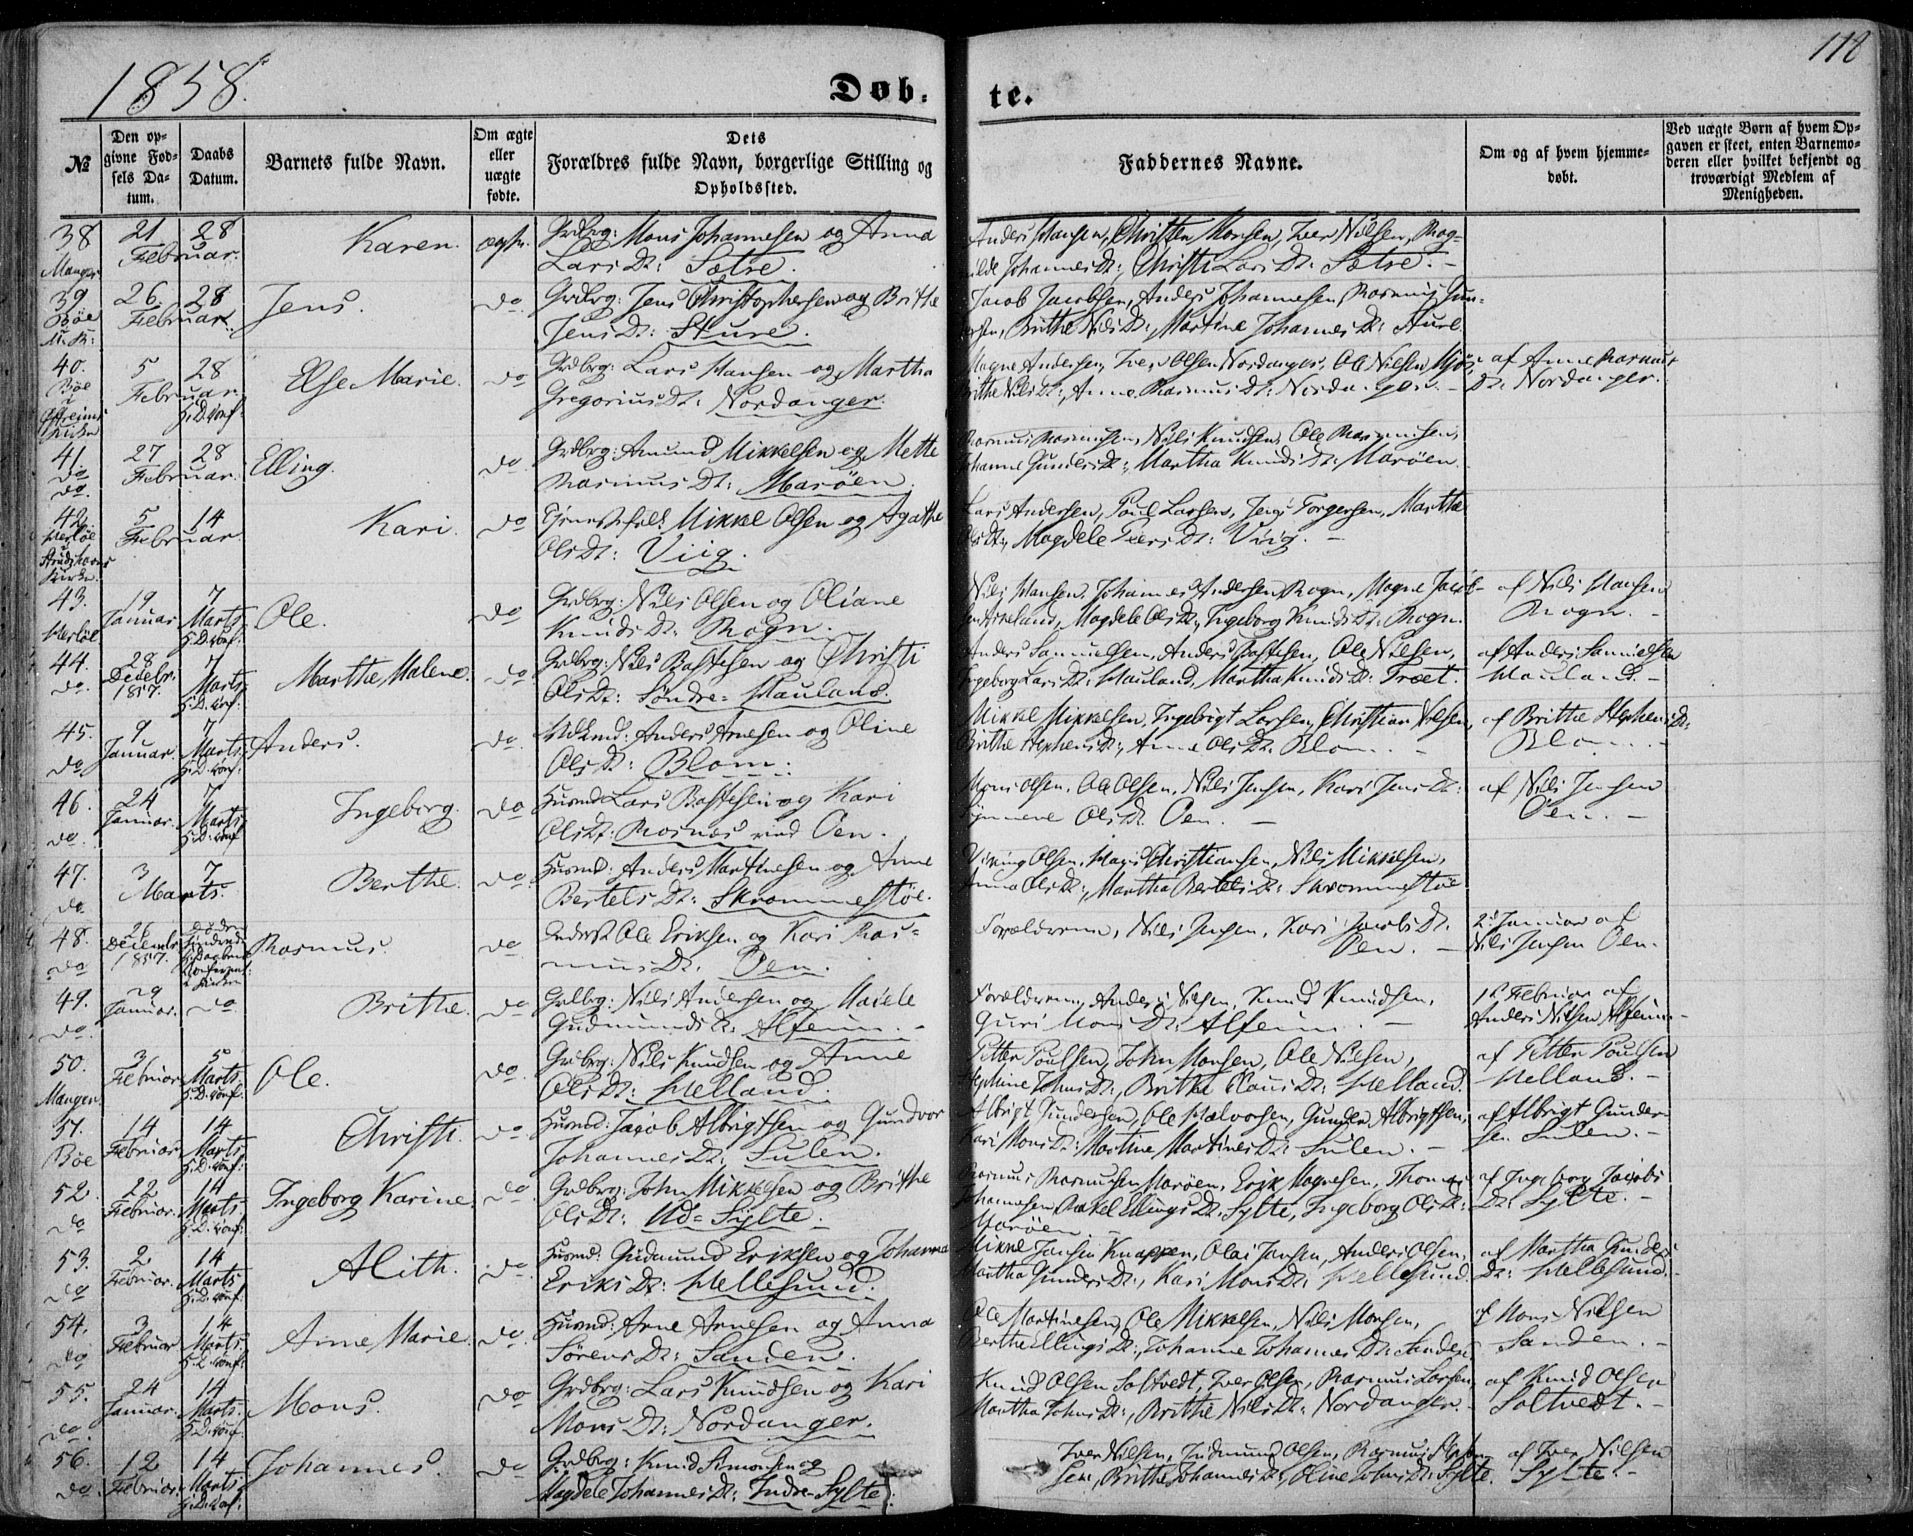 1858.
Døb-
te.
118
№
Den op-
givne Fød-
sels Da-
tum.
Daabs
Datum.
Barnets fulde Navn.
Om ægte
eller
uægte
fødte.
Dets
Forældres fulde Navn, borgerlige Stilling og
Opholdssted.
Faddernes Navne.
Om og af hvem hjemme-
døbt.
Ved uægte Børn af hvem Op-
gaven er skeet, enten Barnemo-
deren eller hvilket bekjendt og
troværdigt Medlem af
Menigheden.
38
Manger
21
28
Februar.
Karen.
Grdbrg: Mons Johannesen og Anna
Larsdt: Sætre.
Anders Hansen, Christen Monsen, Iver Nilsen, Rag-
Johannesdt:, Christi Larsdt: Sætre. -
39
Bøe
26. 28
Februar.
Jens.
do
Grdbrg: Jens Christophersen og Brithe
Jensdt: Sture.
Jacob Jacobsen, Anders Johannesen, Rasmus
Brithe Nilsdt:, Martine Johannesdt:
40.
Bøe
5 28
Februar.
H:D:conf:
Else Marie.
do
Grdbrg: Lars Hansen og Martha
Gregoriusdt: Nordanger.
Magne Andersen, Iver Olsen Nordanger, Ole Nilsen
Brithe Nilsdt:, Anna Rasmusdt: Nordanger. -
af Anne Rasmus
Dt: Nordanger.
41
do
do.
27 28
Februar.
Elling.
do
Grdbrg: Amund Mikkelsen og Mette
Rasmusdt: Marøen.
Rasmus Rasmusen, Nils Knudsen, Ole Rasmusen,
Johanne Gundersdt:, Martha Knudsdt: Marøen.
42
Herløe
Kirke.
5 14
Februar
Kari.
do
Tjenestefolk Mikkel Olsen og Agathe
Olsdt: Viig.
Lars Andersen, Poul Larsen, Torgersen, Martha
Olsdt:, Magdele Viig. -
43.
Herløe
19
Januar
7
Marts
H:D:conf:
Ole.
do
Grdbrg: Nils Olsen og Oliane
Knudsdt: Rogn.
Nils Hansen, Johannes Andersen Rogn, Magne Jacob-
Magdele Olsdt:, Ingeborg Knudsdt: Rogn.
af Nils Hansen
Rogn. -
44.
do.
28
Decbr.
1857
7
Marts
H:D:conf:
Marthe Malene.
do
Grdbrg: Nils Bastesen og Christi
Olsdt: Søndre-Hauland.
Anders Samuelsen, Anders Bastesen, Ole Nilsen,
Ingeborg Larsdt: Hauland, Martha Knudsdt: Træet.
af Anders Samuelsen
Hauland. -
45.
do
9
Januar.
7
Marts
H:D:conf:
Anders.
do.
Anders Arnesen og Oline
Olsdt: Blom.
Mikkel Mikkelsen, Ingebrigt Larsen, Christian Nilsen,
Brithe Stephensdt:, Anne Olsdt: Blom. -
af Brithe Stephensdt:
Blom. -
46.
do.
24
Januar.
7
Marts
H:D:conf:
Ingeborg.
do
Husmd: Lars Bastesen og Kari
Olsdt: Rosnæs ved Oen.
Mons Olsen, Ole Olsen, Nils Jensen, Kari Jensdt:
Olsdt: Oen. -
af Nils Jensen
Oen. -
47.
do
3 7
Marts.
Berthe.
do.
Husmd: Anders Martinesen og Anne
Bertelsdt: Skrommestøe.
Viking Olsen, Hans Christiansen, Nils Mikkelsen,
Anna Olsdt:, Martha Bertelsdt: Skrommestøe
48.
do
26
Decembr
1857.
Rasmus.
do
Ole Eriksen og Kari Ras-
musdt: Oen.
Forældrene, Nils Jensen, Kari Jacobsdt:
Oen. -
2 Januar af
Nils Jensen Oen.
49.
do.
29
Januar.
do
Brithe.
do
Grdbrg: Nils Andersen og
Gudmundsdt: Alfeim. -
Forældrene, Anders Nilsen, Knud Knudsen,
Guri Monsdt: Alfeim. -
1st Februar af
Anders Nilsen Alfeim. -
50.
Manger
3
Februar
5
Marts.
H:D:conf:
Ole.
do.
Grdbrg: Nils Knudsen og Anne
Olsdt: Helland.
Petter Poulsen, John Monsen, Ole Nilsen,
Johnsdt:, Brithe Helland.
af Petter Poulsen
Helland. -
51.
Bøe
14
Februar
14
Marts.
H:D:conf:
Christi.
do
Husmd: Jacob Albrigtsen og Gundvor
Johannesdt: Sulen.
Albrigt Gundersen, Ole Halvorsen, Gunder Albrigtsen,
Kari Monsdt:, Martine Martinesdt: Sulen. -
af Albrigt Gunder-
sen Sulen. -
52.
do
22
Februar.
14
Marts.
H:D:conf:
Ingeborg Karine.
do
Grdbrg: John Mikkelsen og Brithe
Olsdt: Ud-Sylte.
Rasmus Rasmusen Marøen, Erik Magnesen, Thomas
Johannesen, Rakel Ellingsdt: Sylte, Ingeborg Olsdt:
Marøen. -
af Ingeborg Jacobs
Dt: Sylte. -
53.
do
2
Februar.
14
Marts
H:D:conf:
Alith.
do
Husmd: Gudmund Eriksen og Johanna
Eriksdt: Hellesund.
Mikkel Jansen Knappen, Olai Jansen, Anders Olsen,
Martha Gundersdt:, Kari Monsdt: Hellesund.
af Martha Gunders
Dt: Hellesund. -
54.
do
3
Februar
14
Marts
H:D:conf:
Anne Marie
do.
Husmd: Arne Arnesen og Anna
Sørensdt: Sanden.
Ole Martinesen, Ole Mikkelsen, Nils Monsen,
Berthe Ellingsdt:, Johanne Johannesdt: Sanden.
af Mons Nilsen
Sanden. -
55.
do.
24
Januar.
14
Marts.
H:D:conf:
Mons.
do
Grdbrg: Lars Knudsen og Kari
Monsdt: Nordanger.
Knud Olsen Soltvedt, Iver Olsen, Rasmus Larsen,
Martha Johnsdt:, Brithe Nilsdt: Nordanger. -
af Knud Olsen
Soltvedt. -
56.
do.
12
Februar
14
Marts
H:D:conf:
Johannes.
do
Grdbrg: Knud Simonsen og
Magdele Johannesdt: Indre-Sylte.
Iver Nilsen, Gudmund Olsen, Rasmus
sen, Brithe Johannesdt:, Oline Johnsdt: Sylte.
af Iver Nilsen
Sylte. -